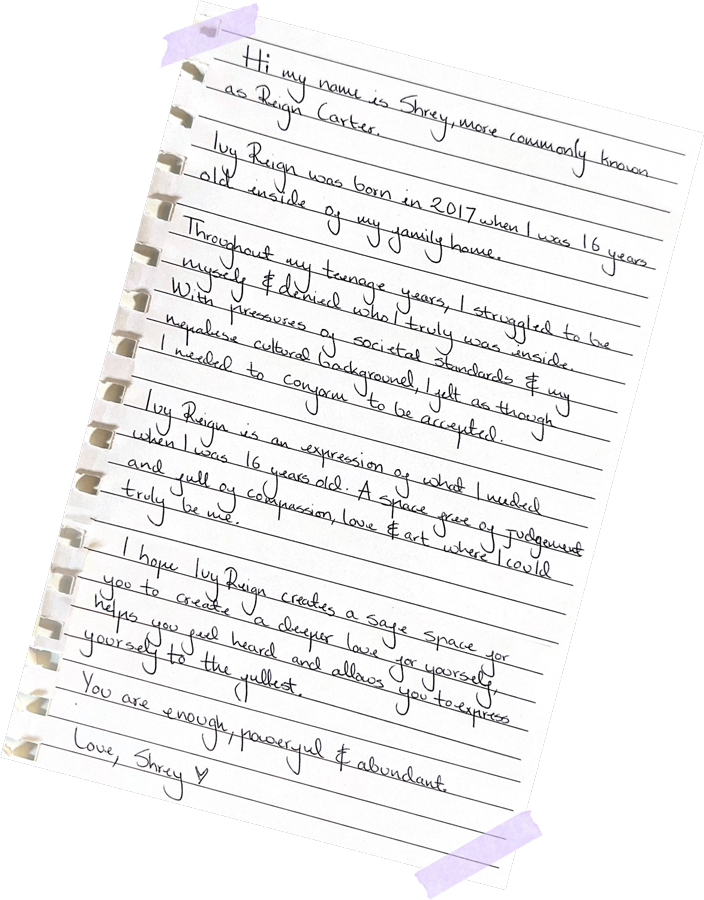 Hi my name is Shrey, more commonly known
as Reign Carter.
Ivy Reign was born in 2017 when I was 16 years
old inside of my family home.
Throughout my teenage years, I struggled to be
myself & denied who I truly was inside.
With pressures of societal standards & my
nepalese cultural background, I felt as though
I needed to conform to be accepted.
Ivy Reign is an expression of what I needed
when I was 16 years old. A space free of judgement
and full of compassion, love & art where I could
truly be me.
I hope Ivy Reign creates a safe space for
you to create a deeper love for yourself,
helps you feel heard and allows you to express
yourself to the fullest.
You are enough, powerful & abundant.
Love, Shrey ♡